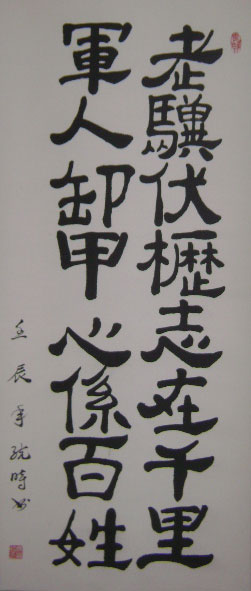 老驥伏櫪志在千里
軍人卸甲心係百姓
壬辰年